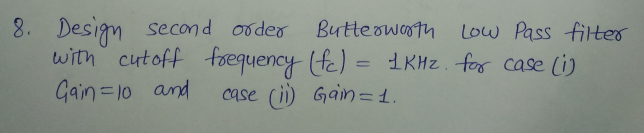 8. Design second order Butterworth Low Pass filter
with cutoff frequency (fc) = 1KHz. for case (i)
Gain=10 and case (ii) Gain=1.